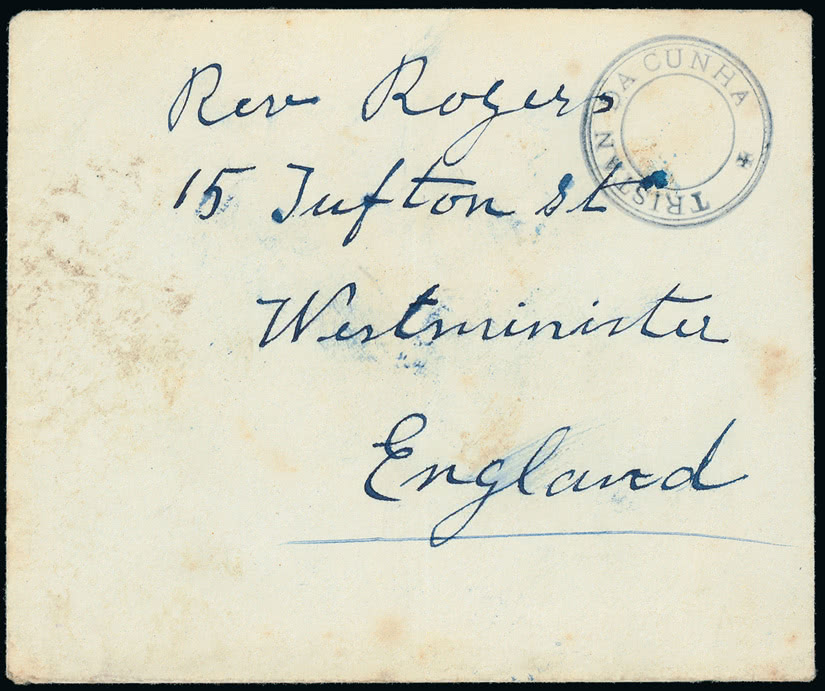 Rev Rogers
15 Tufton st
Westminister
England
TRISTAN DA CUNHA